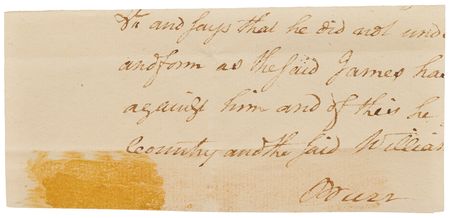 and says that he did not und
and form as the said James ha
against him and of this he
Country and the said William
ABurr